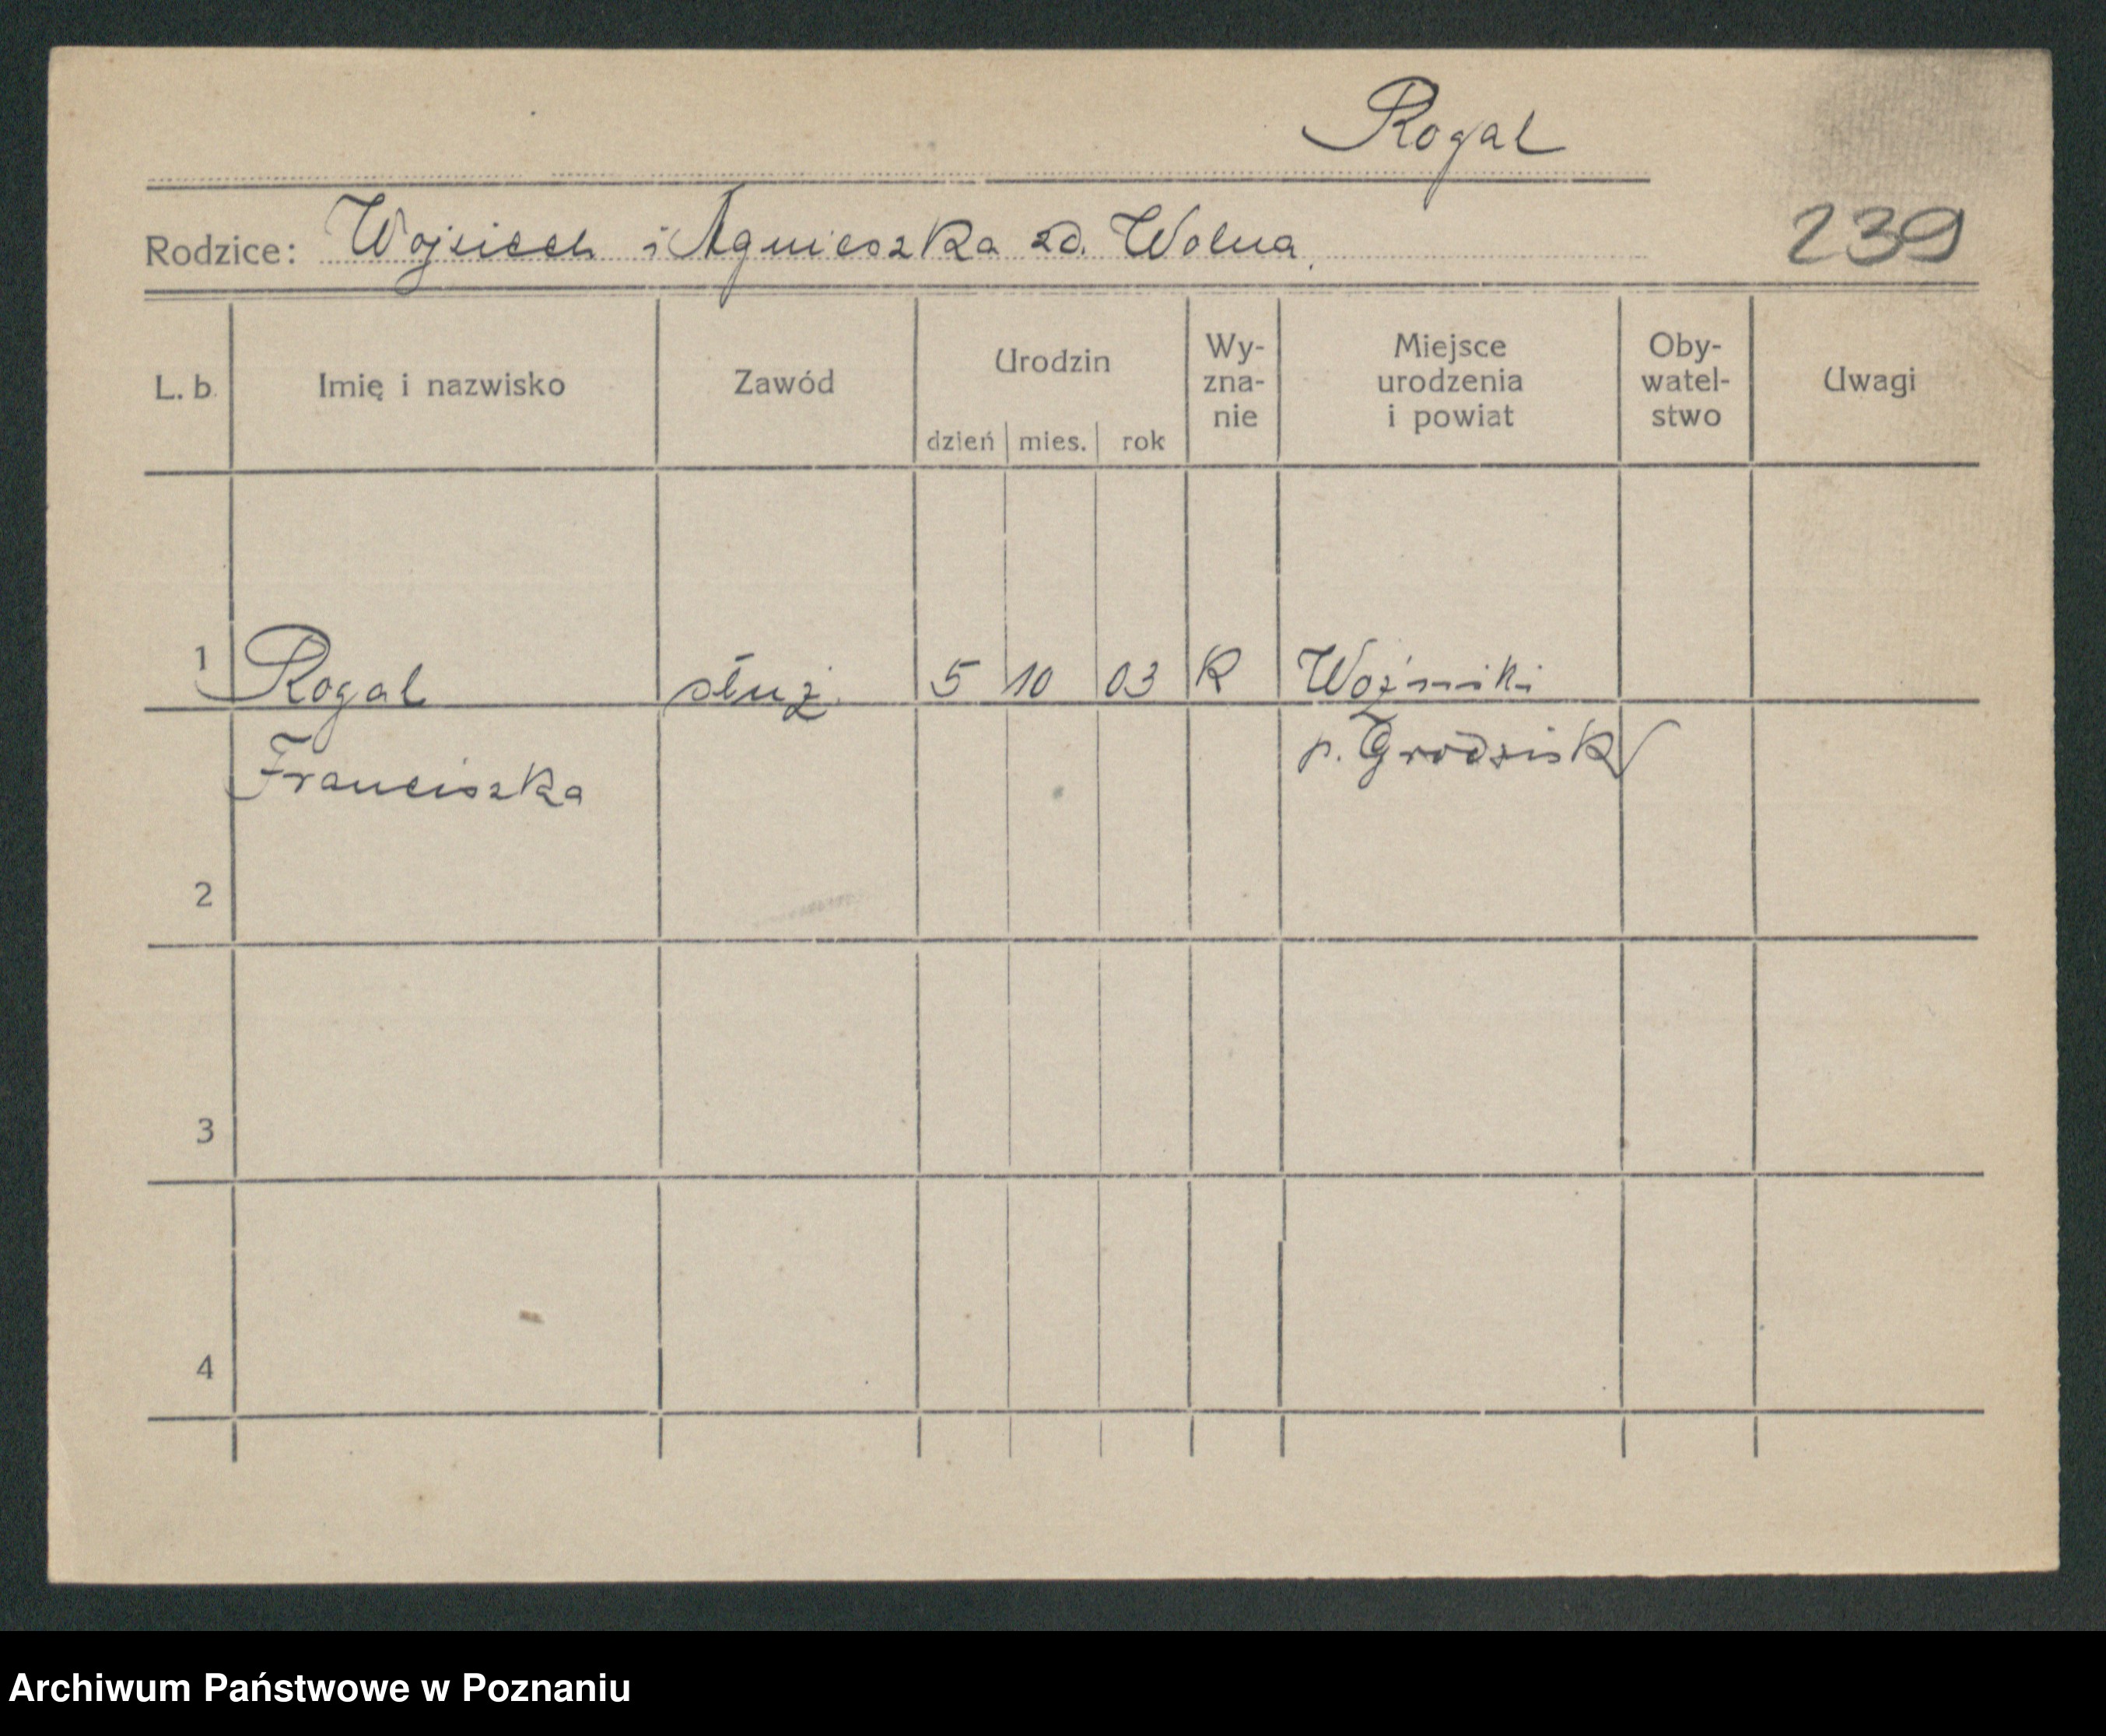 Rogal
Rodzice: Wojciech i Agnieszka zd. Wolna.
239
L. b. Imię i nazwisko Zawód Urodzin dzień mies. rok Wy-zna-nie Miejsce urodzenia i powiat Oby-watel-stwo Uwagi
1 Rogal służ. 5 10 03 K Woźniki
Franciszka p. Grodzisk
2
3
4
Archiwum Państwowe w Poznaniu